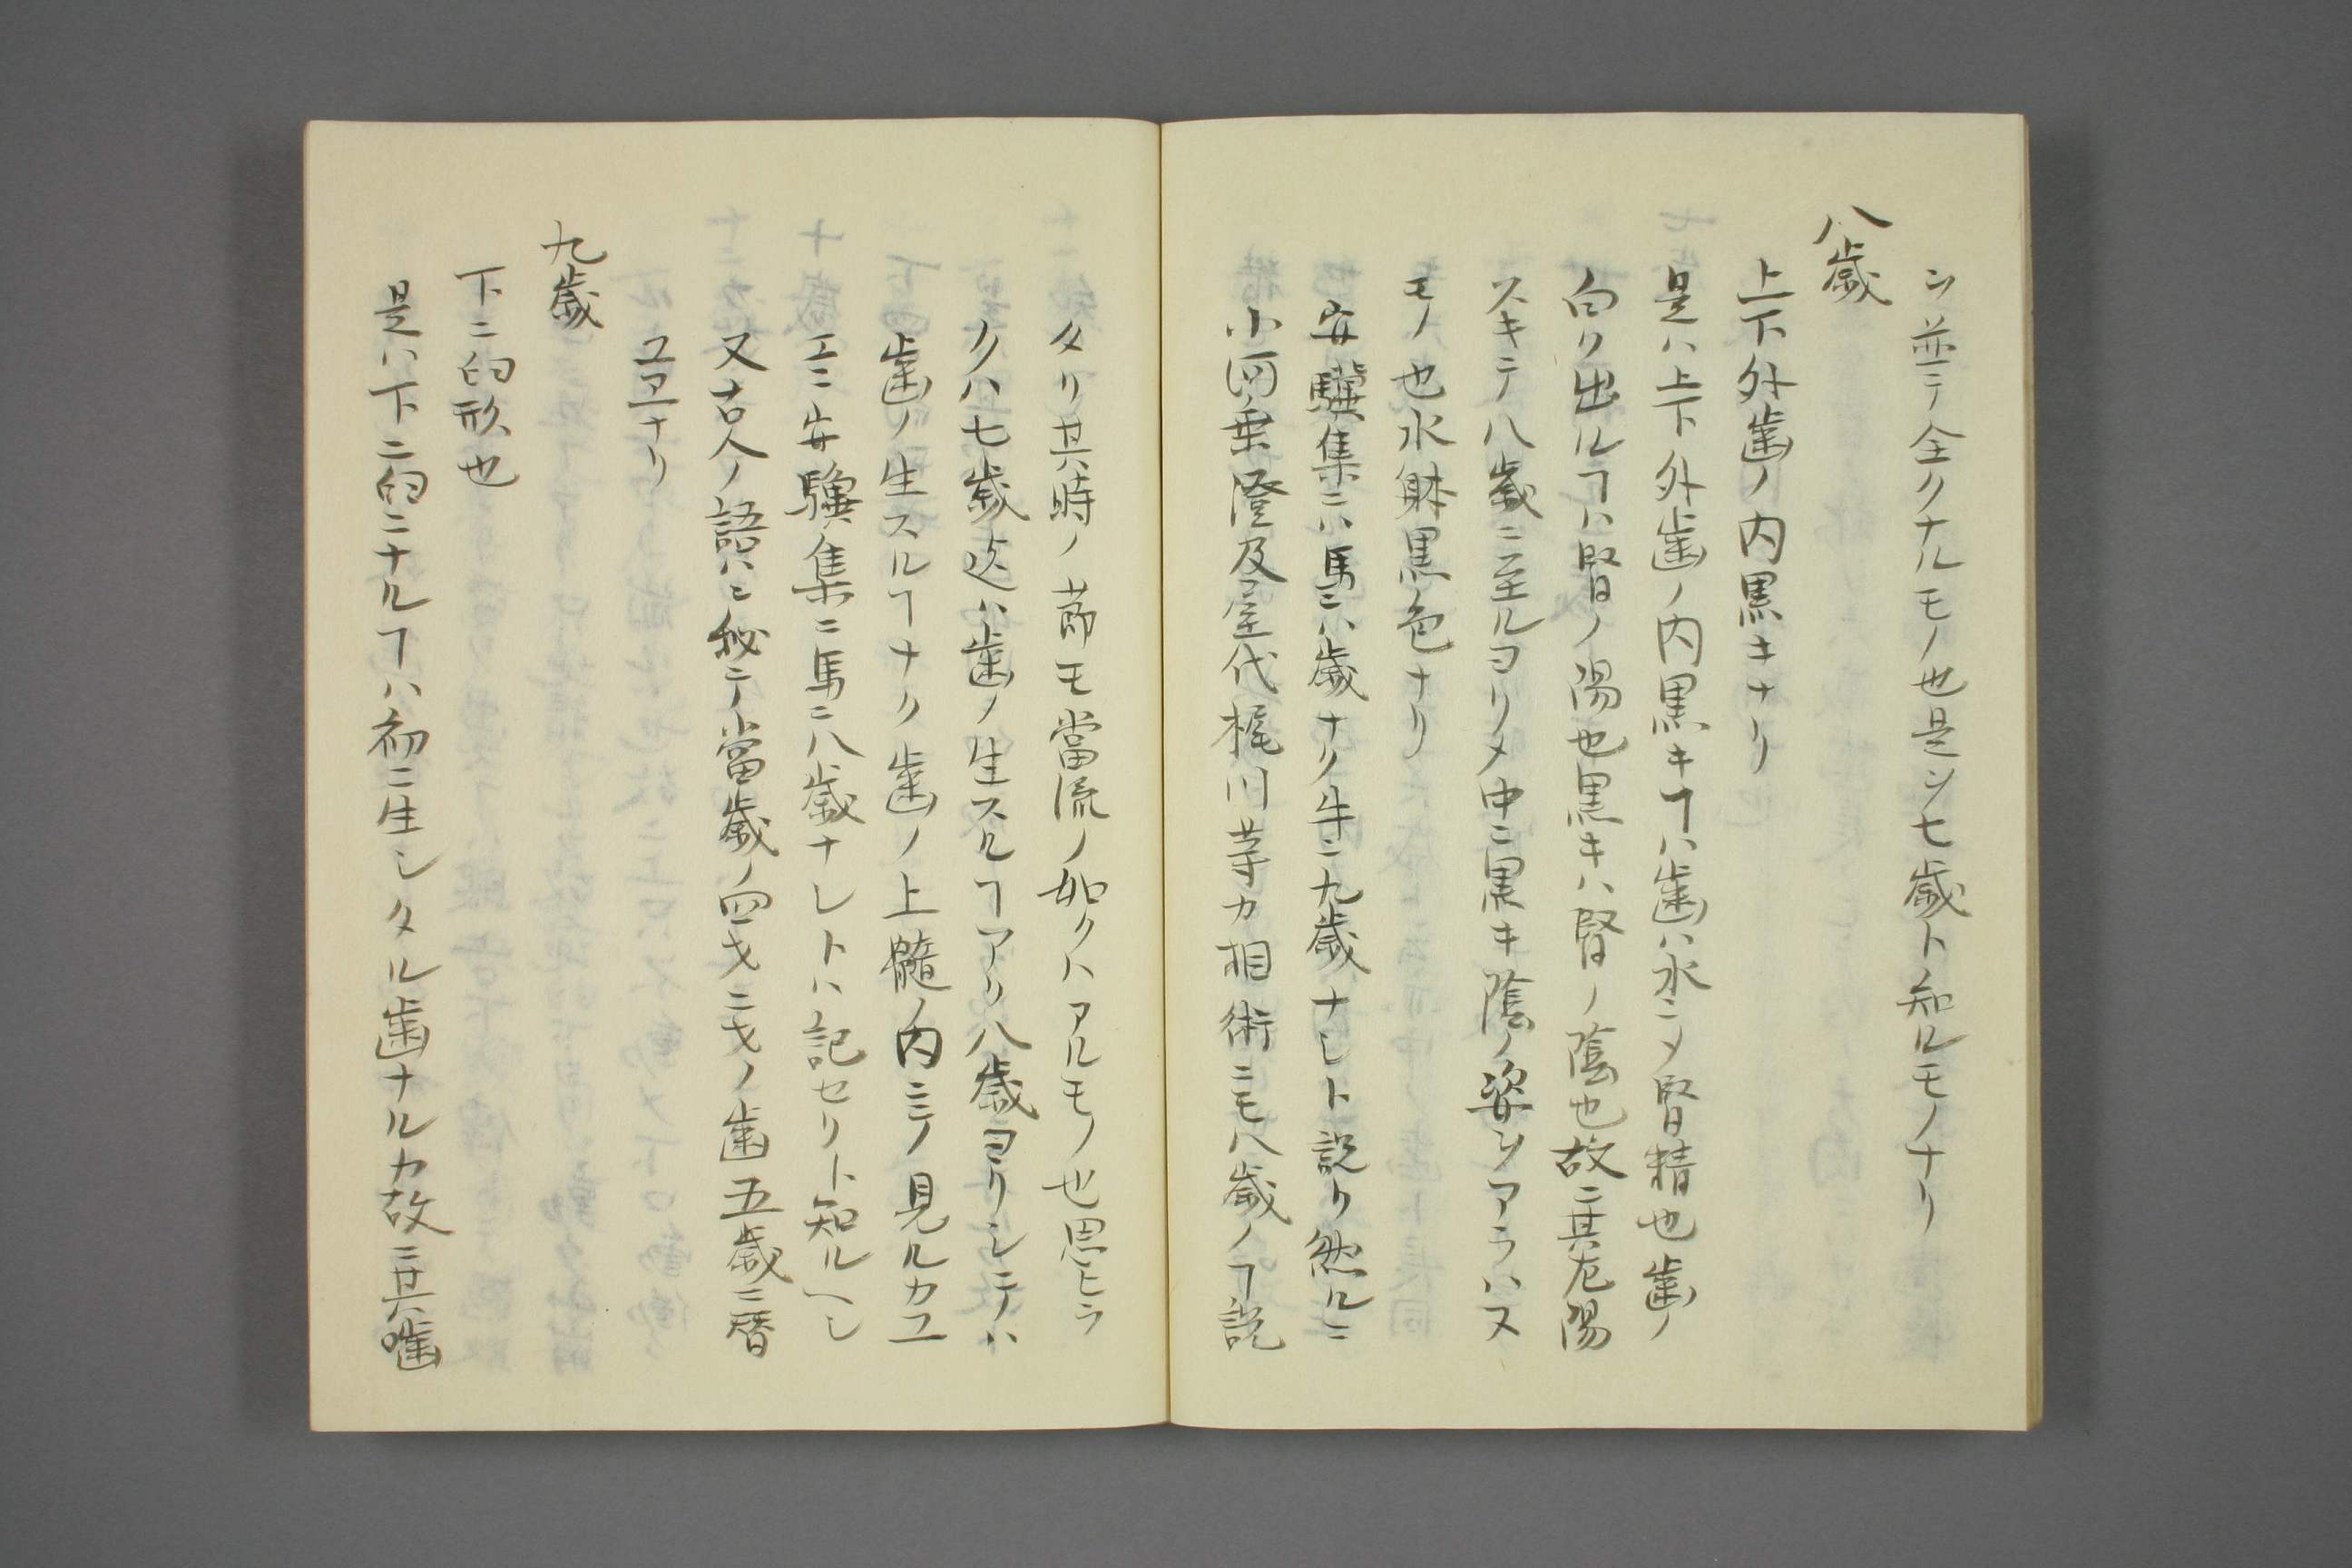 ヲ並テ全クナルモノ也是ヲ七歳ト知ルモノナリ
八歳
上下外歯ノ内黒キナリ
是ハ上下外歯ノ内黒キヿハ歯ハ水ニメ腎精也歯ノ
白ク出ルヿハ腎ノ陽也黒キハ腎ノ陰也故ニ其左陽
スキテ八歳ニ至ルヨリメ中ニ黒キ陰ノ姿ヲアラハス
モノ也水躰黒色ナリ
安驥集ニハ馬ニ八歳ナク牛ニ九歳ナシト説ク然ルニ
小河乗澄及屋代梶川等カ相術ニモ八歳ノヿ説
タリ其時ノ節モ當流ノ如クハアルモノ也思ヒラ
クハ七歳迄ハ歯ノ生スルヿアリ八歳ヨリシテハ
歯ノ生スルヿナク歯ノ上髄ノ内ニミノ見ルカユ
エニ安驥集ニ馬ニ八歳ナシトハ記セリト知ルヘシ
又古人ノ語ハニ秘テ當歳ノ四才ニ才ノ歯五歳ニ暦
ユヱナリ
九歳
下二臼形也
是ハ下二臼ニナルヿハ初ニ生シタル歯ナルカ故ニ其噛